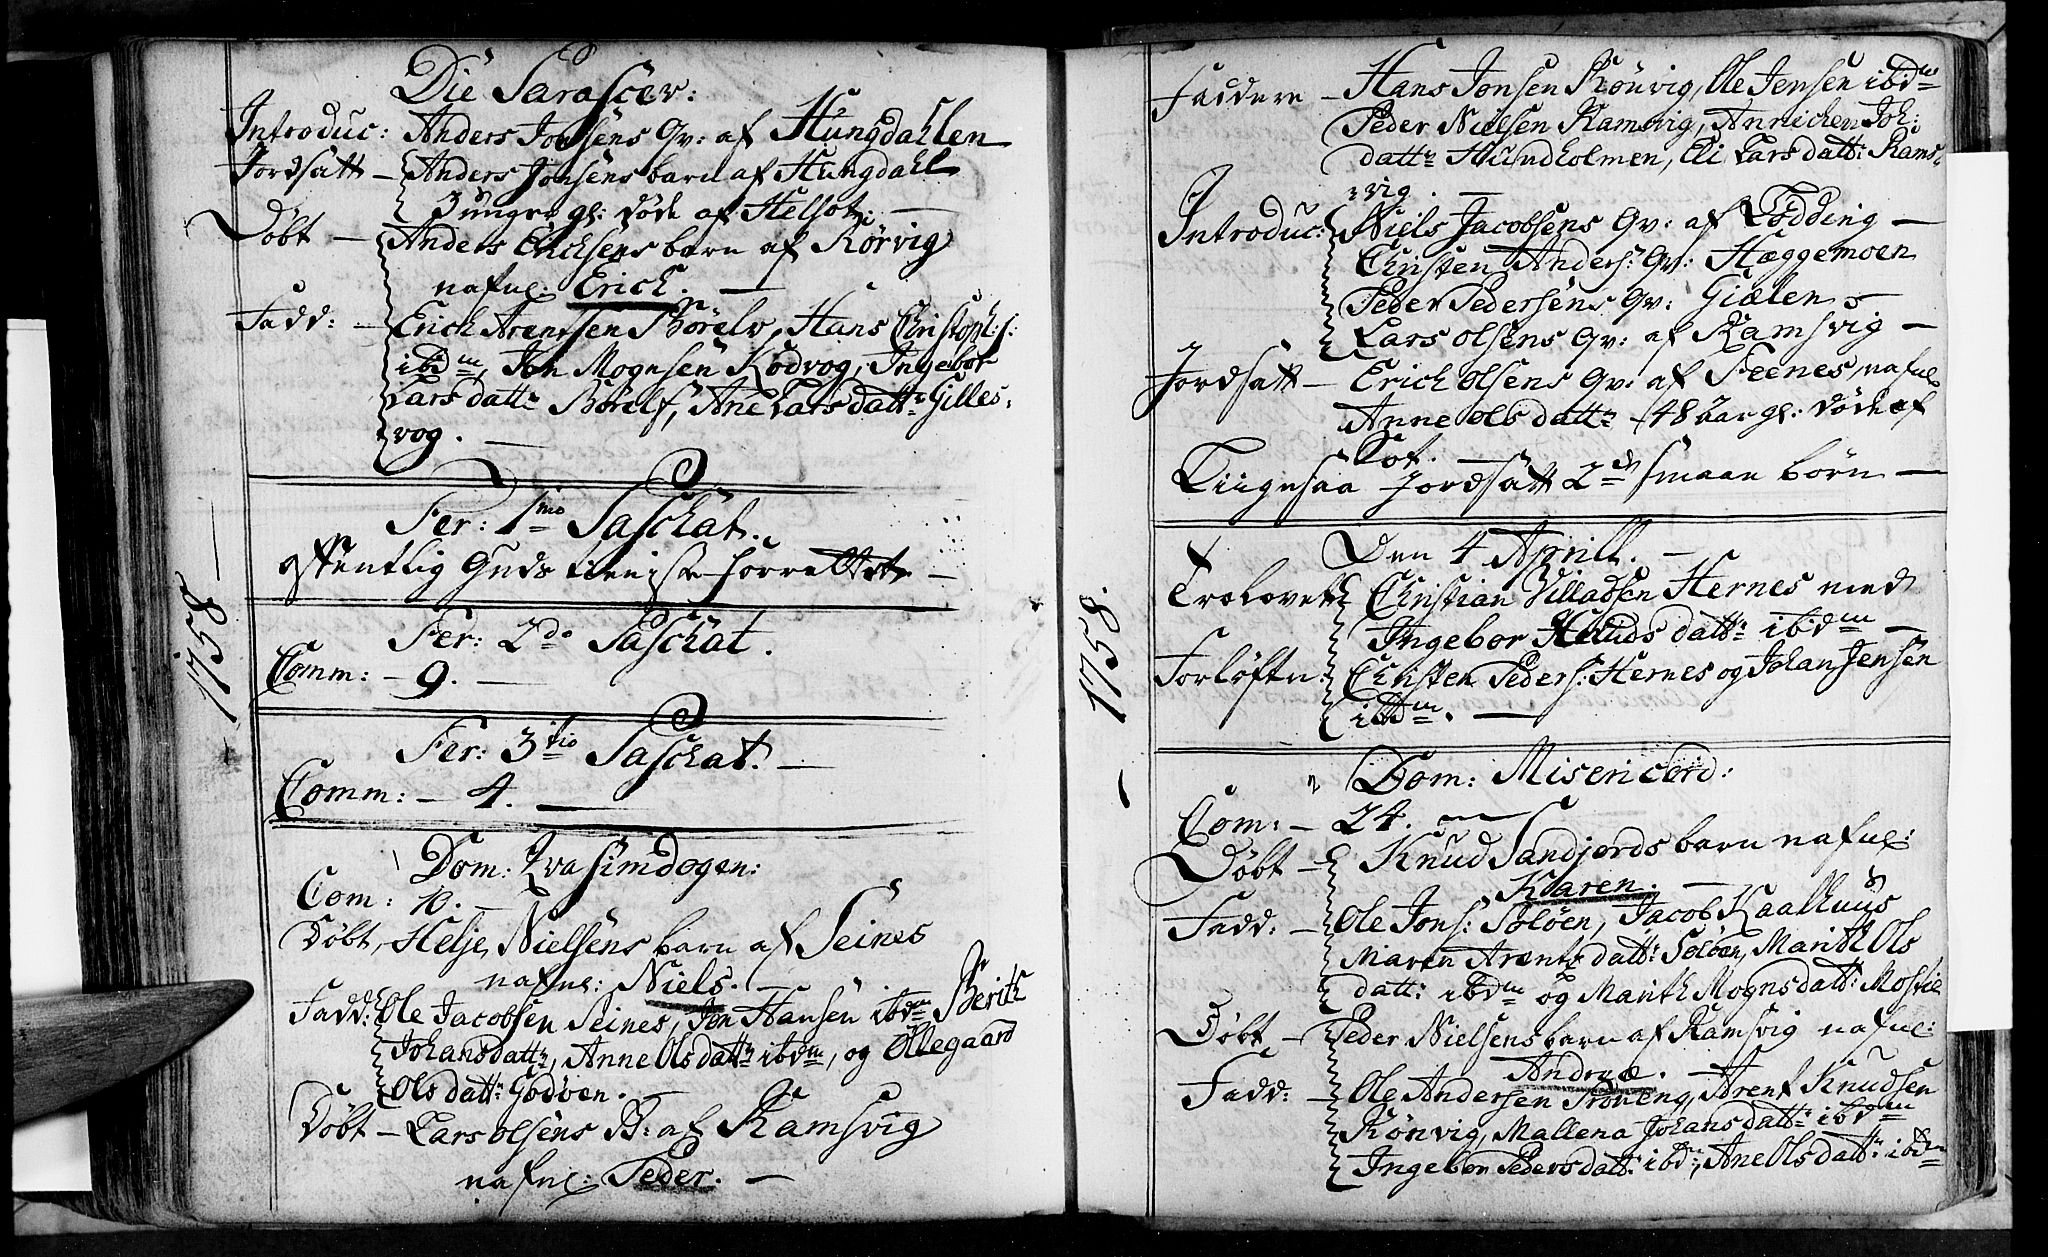 Die Parascev:
Introduc: Anders Jonsens Qv: af Hungdahlen
Jordsatt – Anders Jonsens barn af Hungdahl
3 unger gl: døde af Helsot. –
Døbt – Anders Erichsens barn af Rörvig
nafnl. Erich. –
Fadd: – Erich Arentsen Börelv, Hans Christoph: s:
ibdm, Jon Mognsen Kodvog, Ingebor
Larsdattr Börelf, Ane Larsdattr Gilles-
vog. –
1758
Fer: 1mo Paschat.
offentlig Guds tieniste forrettet –
Fer: 2do Paschat.
Comm: – 9. –
Fer: 3tio Paschat. –
Comm: – 4. –
Dom: Qvasimdogen:
Com: 10. –
Døbt, Helje Nielsens barn af Seines
nafnl: Niels. –
Fadd: Ole Jacobsen Seines, Jon Hansen ibdm Berith
Johansdattr, Anne Olsdattr ibdm, og Ollegaard
Olsdattr Godöen. –
Døbt – Lars Olsens B: af Ramsvig
nafnl: Peder. –
Faddere – Hans Jonsen Rönvig, Ole Jensen ibdm
Peder Nielsen Ramsvig, Annichen Joh:
dattr Hundholmen, Eli Larsdatt: Rams-
vig. –
Introduc: Niels Jacobsens Qv: af Lödding –
Christen Anders: Qv: Hæggemoen
Peder Pedersens Qv: Giælen –
Lars Olsens Qv: af Ramsvig –
Jordsatt – Erich Olsens Qv: af Feenes, nafnl
Anne Olsdattr – 48 aar gl: døde af
Sot. –
Ligesaa Jordsatt 2de smaae börn –
1758.
Den 4 Aprill. –
Trolovet Christian Villadsen Hernes med
Ingebor Knudsdattr ibidm –
Forlöftn: Christen Peders: Hernes og Johan Jensen
ibdm. –
Dom: Misericord:
Com: – 24. –
Døbt – Knud Sandjords barn nafnl:
Karen. –
Fadd: – Ole Jons: Solöen, Jacob Kaalhuus
Maren Arentsdatt: Solöen, Marith Ols
datt: ibdm og Marith Mognsdatt: Mostie
Døbt – Peder Nielsens barn af Ramsvig nafnl:
Andreæ. –
Fadd: – Ole Andersen Tröneng, Arent Knudsen
Rönvig, Mallena Johansdatt: ibdm
Ingebor Pedersdatt: ibd:, Ane Olsdatt: ibdm